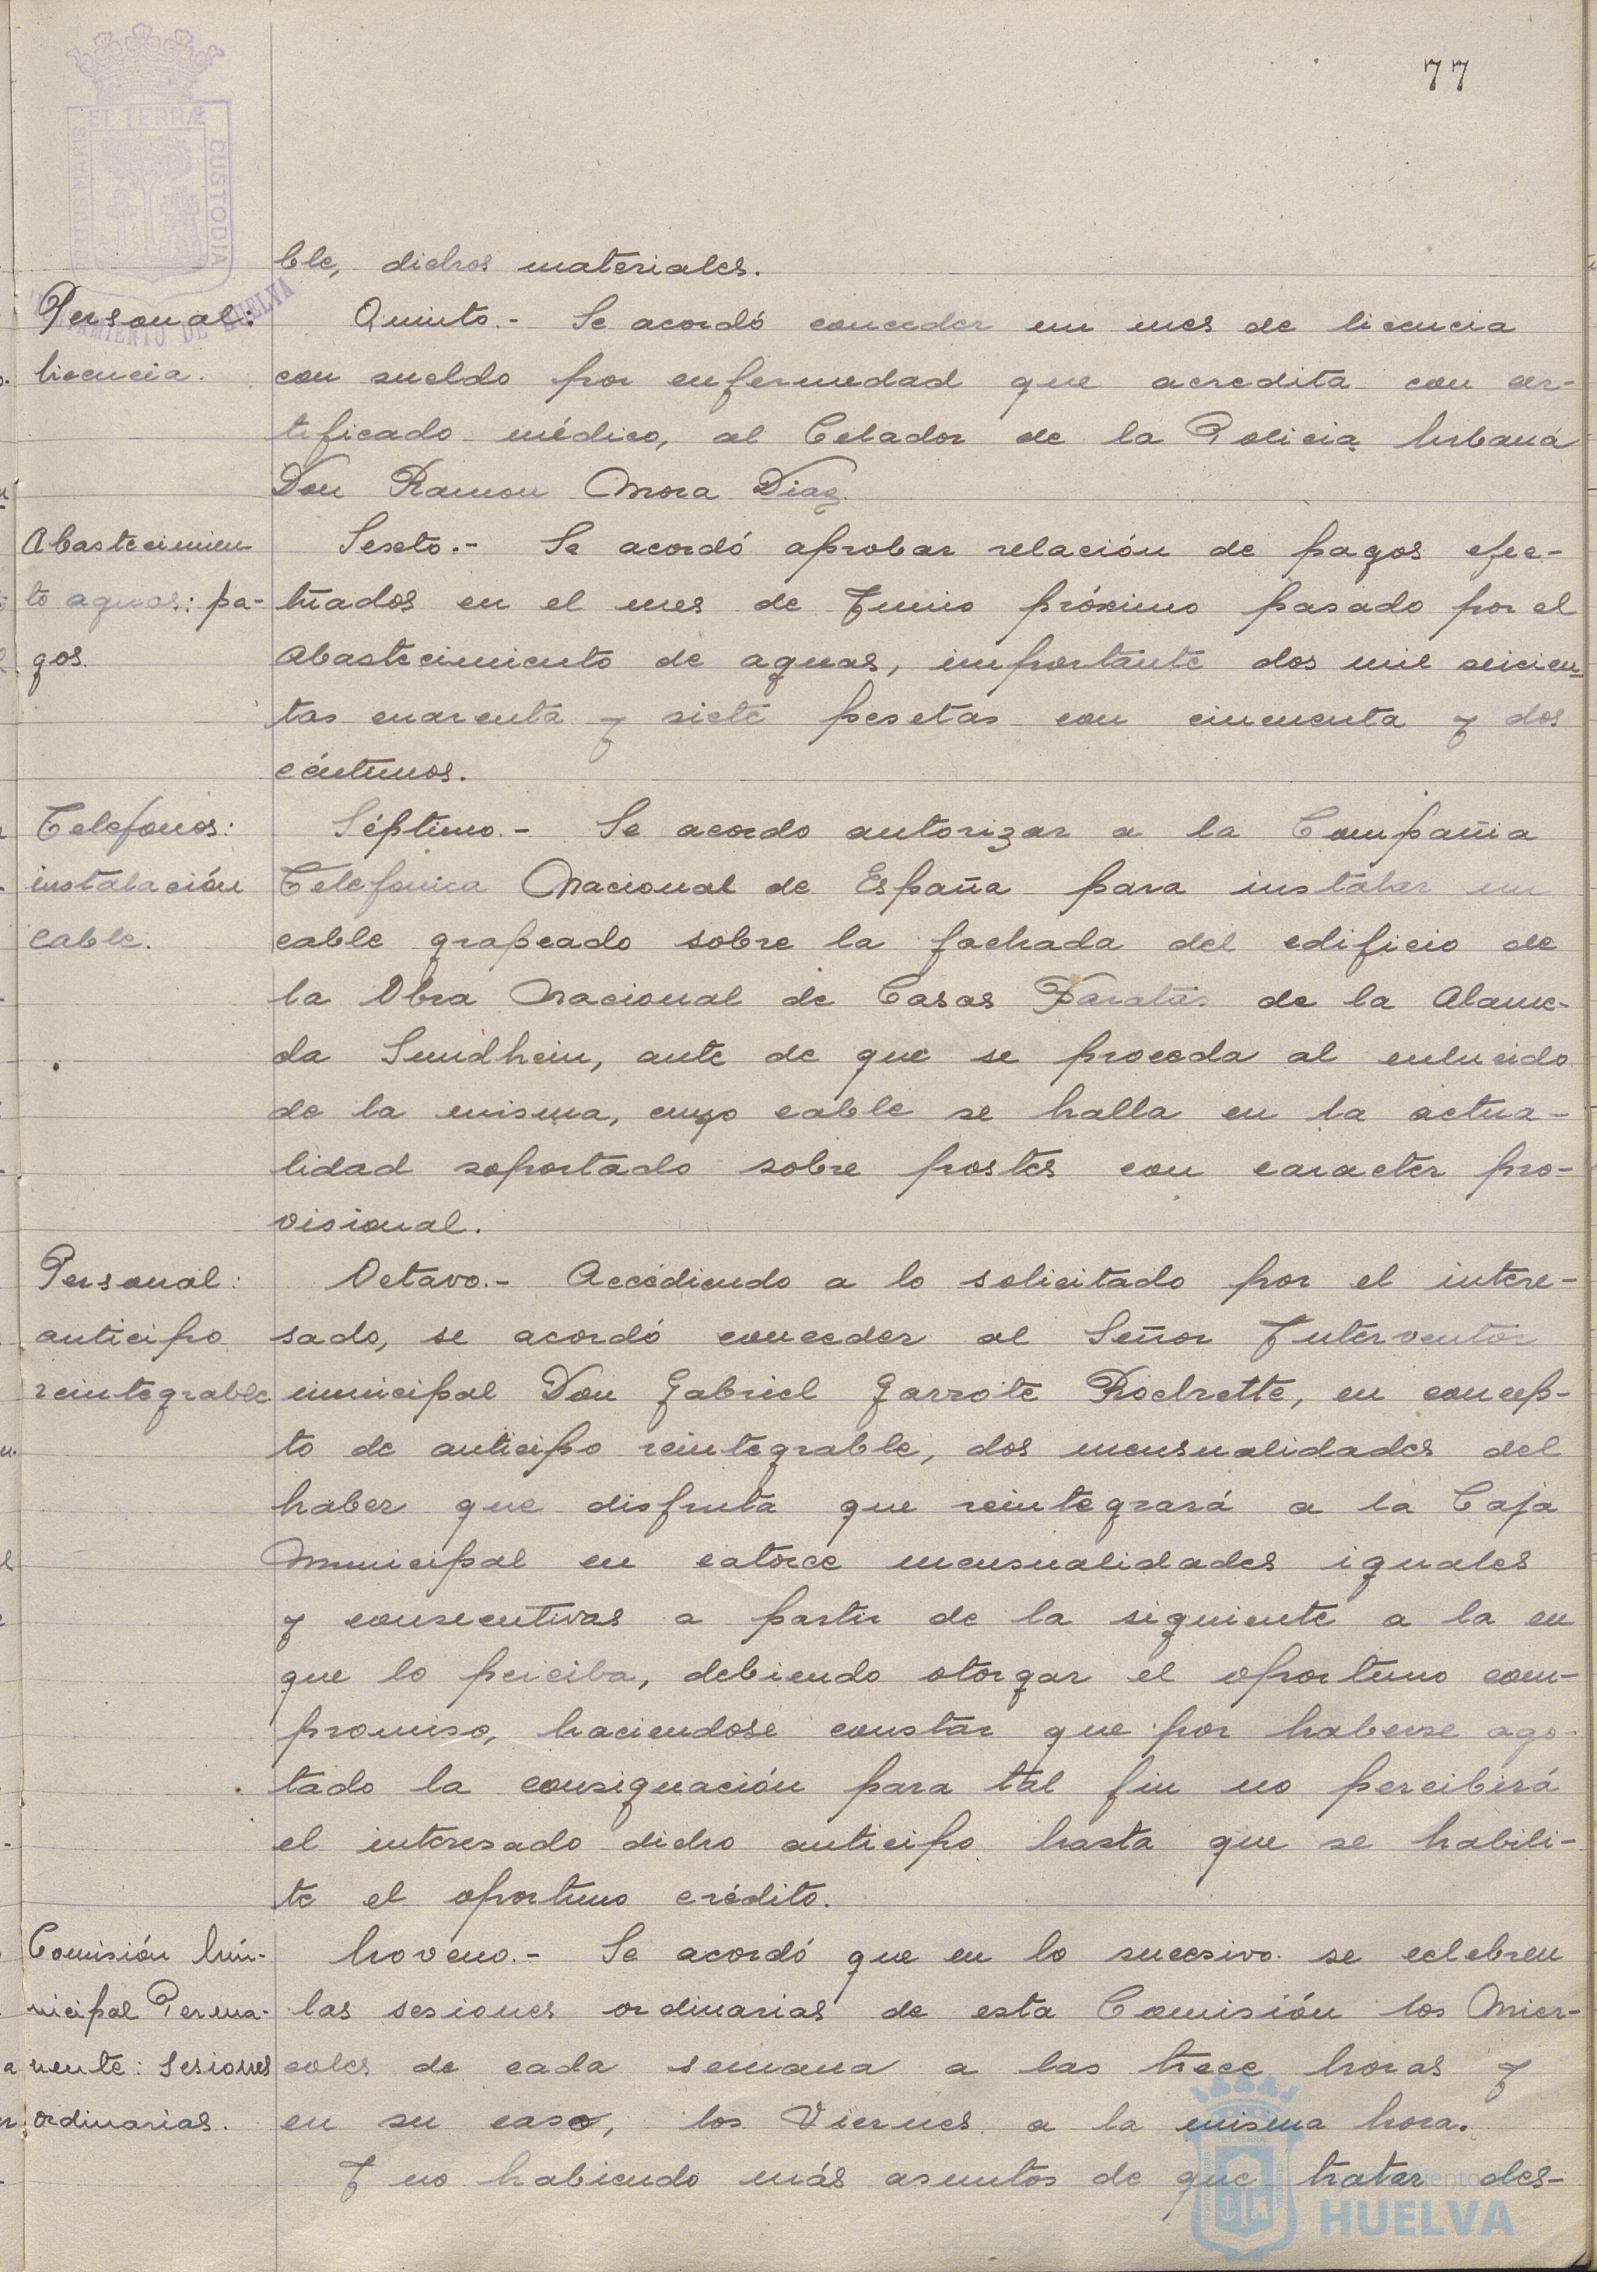 77
PORTUS MARIS
ET TERRÆ
CUSTODIA
AYUNTAMIENTO DE HUELVA
ble, dichos materiales.
Personal:
licencia.
Quinto.- Se acordó conceder un mes de licencia
con sueldo por enfermedad que acredita con cer-
tificado médico, al Celador de la Policia Urbana
Don Ramon Mora Diaz.
Abastecimien
to aguas: pa-
gos.
Sexto.- Se acordó aprobar relación de pagos efec-
tuados en el mes de Junio próximo pasado por el
abastecimiento de aguas, importante dos mil seiscien-
tas cuarenta y siete pesetas con cincuenta y dos
céntimos.
Telefonos:
instalación
cable.
Séptimo.- Se acordo autorizar a la Compañia
Telefonica Nacional de España para instalar un
cable grapeado sobre la fachada del edificio de
la Obra Nacional de Casas Baratas de la Alame-
da Sundhein, ante de que se proceda al enlucido
de la misma, cuyo cable se halla en la actua-
lidad soportado sobre postes con caracter pro-
visional.
Personal:
anticipo
reintegrable.
Octavo.- Accediendo a lo solicitado por el intere-
sado, se acordó conceder al Señor Interventor
municipal Don Gabriel Garrote Rochette, en concep-
to de anticipo reintegrable, dos mensualidades del
haber que disfruta que reintegrará a la Caja
Municipal en catorce mensualidades iguales
y consecutivas a partir de la siguiente a la en
que lo perciba, debiendo otorgar el oportuno com-
promiso, haciendose constar que por haberse ago-
tado la consignación para tal fin no percibirá
el interesado dicho anticipo hasta que se habili-
te el oportuno crédito.
Comisión Mu-
nicipal Perma-
nente: Sesiones
ordinarias.
Noveno.- Se acordó que en lo sucesivo se celebren
las sesiones ordinarias de esta Comisión los Mier-
coles de cada semana a las trece horas y
en su caso, los Viernes a la misma hora.
Y no habiendo más asuntos de que tratar des-
HUELVA